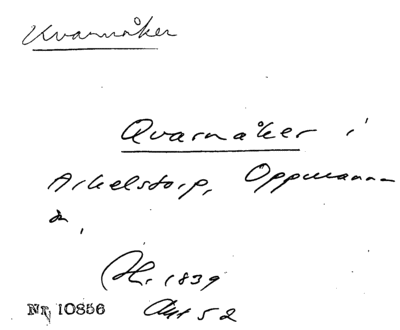 Kvarnåker
Qvarnåker i
Arkelstorp, Oppmanna
sn,
Hr. 1839
Nr 10856 Akt 52